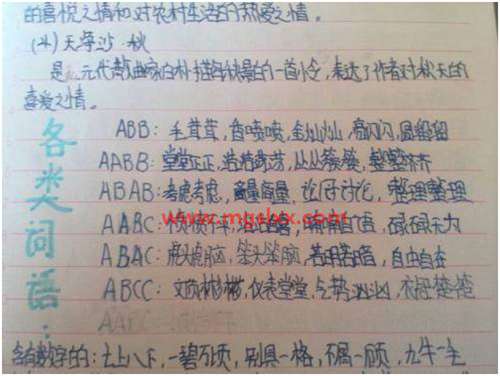 的喜悦之情和对农村生活的热爱之情。
(4)天净沙·秋
是元代散曲家白朴描写秋景的一首小令，表达了作者对秋天的
喜爱之情。
各类词语：
ABB：毛茸茸，香喷喷，金灿灿，亮闪闪，圆溜溜
AABB：堂堂正正，浩浩荡荡，丛丛簇簇，整整齐齐
ABAB：考虑考虑，商量商量，讨论讨论，整理整理
AABC：自语，碌碌无为
www.mgshx.com
ABAC：虎头虎脑，笨头笨脑，若明若暗，自由自在
ABCC：文质彬彬，仪表堂堂，气势汹汹，衣冠楚楚
含有数字的：七上八下，一碧万顷，别具一格，不屑一顾，九牛一毛